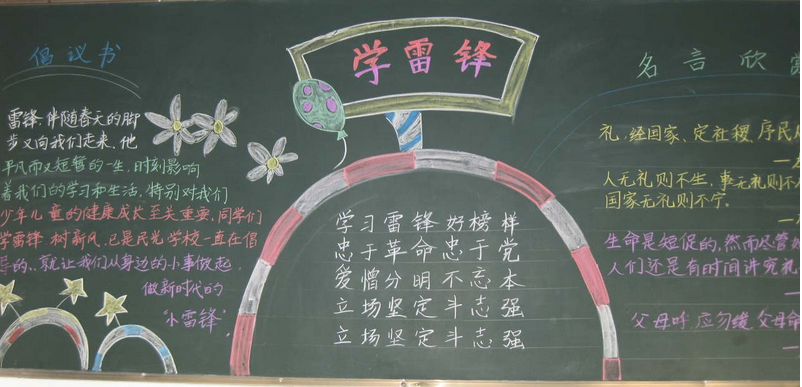 倡议书
雷锋,伴随春天的脚
步又向我们走来、他
平凡而又短暂的一生,时刻影响
着我们的学习和生活,特别对我们
少年儿童的健康成长至关重要,同学们
学雷锋 树新风,已是民光学校一直在倡
导的、就让我们从身边的小事做起,
做新时代的
“小雷锋”
学雷锋
学习雷锋好榜样
忠于革命忠于党
爱憎分明不忘本
立场坚定斗志强
立场坚定斗志强
名言欣赏
礼,经国家、定社稷,序民
人无礼则不生,事无礼则不
国家无礼则不宁。
生命是短促的,然而尽管如
人们还是有时间讲究礼
父母呼 应勿缓 父母命